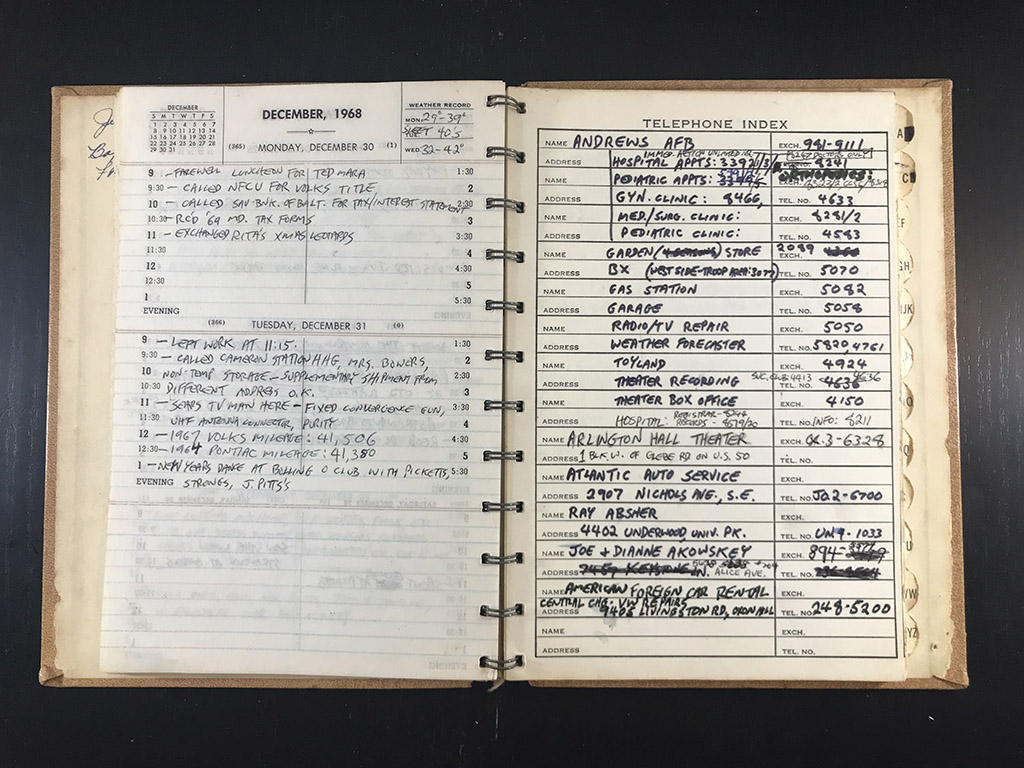 DECEMBER
S M T W T F S
1 2 3 4 5 6 7
8 9 10 11 12 13 14
15 16 17 18 19 20 21
22 23 24 25 26 27 28
29 30 31
DECEMBER, 1968
(365) MONDAY, DECEMBER 30 (1)
WEATHER RECORD
MON. 29°-39°
TUE. SLEET 40'S
WED. 32-42°
9 - FAREWELL LUNCHEON FOR TED MARA 1:30
9:30 - CALLED NFCU FOR VOLKS TITLE, 2
10 - CALLED SAV BNK. OF BALT. FOR TAX/INTEREST STATEMENT 2:30
10:30 - RC'D '69 MD. TAX FORMS 3
11 - EXCHANGED RITA'S XMAS LEOTARDS 3:30
11:30 4
12 4:30
12:30 5
1 5:30
EVENING
(366) TUESDAY, DECEMBER 31 (0)
9 - LEFT WORK AT 11:15. 1:30
9:30 - CALLED CAMERON STATION HHG, MRS. BOWERS, 2
10 NON-TEMP STORAGE - SUPPLEMENTARY SHIPMENT FROM 2:30
10:30 DIFFERENT ADDRESS O.K. 3
11 - SEARS TV MAN HERE - FIXED CONVERGENCE GUN, 3:30
11:30 UHF ANTENNA CONNECTOR, PURITY 4
12 - 1967 VOLKS MILEAGE: 41,506 4:30
12:30 - 1964 PONTIAC MILEAGE: 41,380 5
1 - NEW YEARS DANCE AT BOLLING O CLUB WITH PICKETTS, 5:30
EVENING STRONGS, J. PITTS'S
TELEPHONE INDEX
NAME ANDREWS AFB EXCH. 981-9111
ADDRESS HOSPITAL APPTS: 33921/3/ 8341
NAME PEDIATRIC APPTS: ORTHOPEDICS:
ADDRESS GYN. CLINIC: 8466, TEL. NO. 4633
NAME MED./SURG. CLINIC: EXCH. 8281/2
ADDRESS PEDIATRIC CLINIC: TEL. NO. 4583
NAME GARDEN STORE 2089
ADDRESS BX (WEST SIDE-TROOP AREA: 3077) TEL. NO. 5070
NAME GAS STATION EXCH. 5082
ADDRESS GARAGE TEL. NO. 5058
NAME RADIO/TV REPAIR EXCH. 5050
ADDRESS WEATHER FORECASTER TEL. NO. 5820, 4761
NAME TOYLAND EXCH. 4924
ADDRESS THEATER RECORDING SVC. CLUB 4413 TEL. NO. 4636
NAME THEATER BOX OFFICE EXCH. 4150
ADDRESS HOSPITAL: REGISTRAR- 8244 RECORDS - 8619/20 TEL. NO. INFO: 8211
NAME ARLINGTON HALL THEATER EXCH. OX. 3-6328
ADDRESS 1 BLK. W. OF GLEBE RD ON U.S. 50 TEL. NO.
NAME ATLANTIC AUTO SERVICE EXCH.
ADDRESS 2907 NICHOLS AVE., S.E. TEL. NO. JO2-6700
NAME RAY ABSHER EXCH.
ADDRESS 4402 UNDERWOOD UNIV. PK. TEL. NO. UN9-1033
NAME JOE + DIANNE AKOWSKEY EXCH. 894-
ADDRESS ALICE AVE. TEL. NO.
NAME AMERICAN FOREIGN CAR RENTAL EXCH.
CENTRAL CHG. VW REPAIRS
ADDRESS 9405 LIVINGSTON RD, OXON HILL TEL. NO. 248-5200
NAME EXCH.
ADDRESS TEL. NO.
A
C
EF
GH
IJK